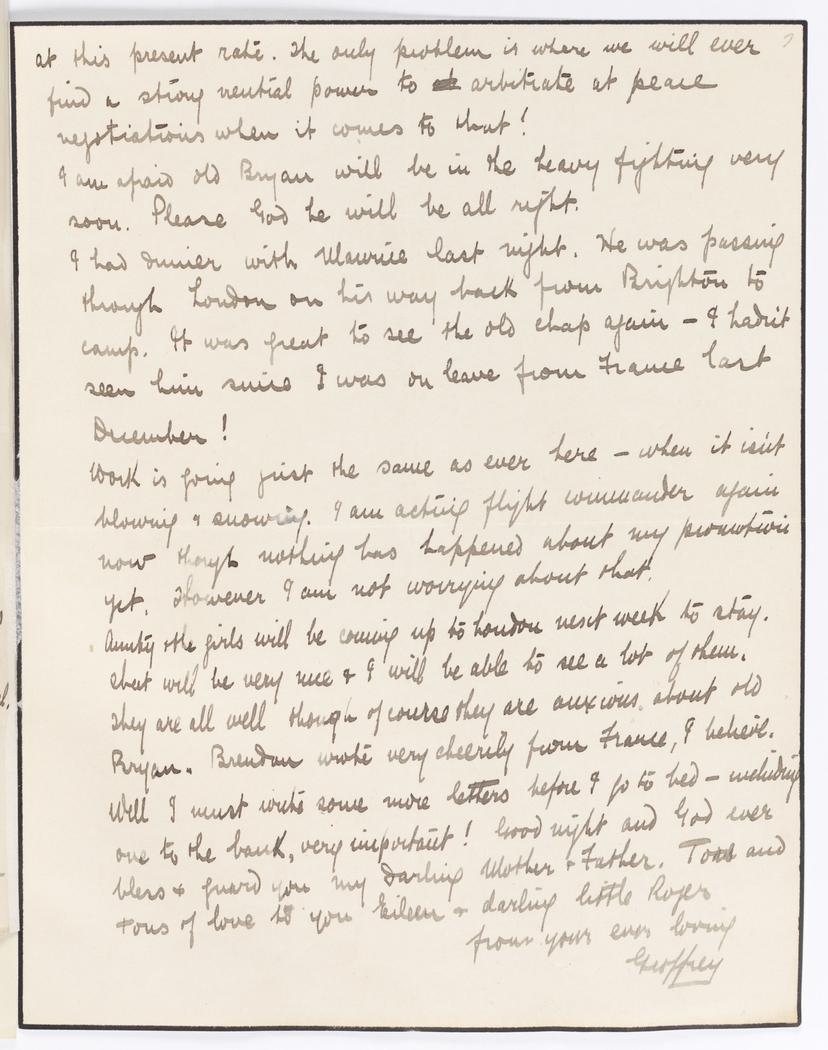 at this present rate. The only problem is where we will ever
find a strong neutial power to arbitrate at peace
negotiations when it comes to that!
I am afraid old Bryan will be in the heavy fighting very
soon. Please God he will be all right.
I had dinner with Maurice last night. He was passing
through London on his way back from Brighton to
camp. It was great to see the old chap again – I hadn't
seen him since I was on leave from France last
December!
Work is going just the same as ever here – when it isn't
blowing & snowing. I am acting flight commander again
now though nothing has happened about my promotion
yet. However I am not worrying about that.
Aunty & the girls will be coming up to London next week to stay.
that will be very nice & I will be able to see a lot of them.
They are all well though of course they are anxious about old
Bryan. Brendan wrote very cheerily from France, I believe.
Well I must write some more letters before I go to bed – including
one to the bank, very important! Good night and God ever
bless & guard you my darling Mother & Father. Tons and
tons of love to you Eileen & darling little Roger
from your ever loving
Geoffrey